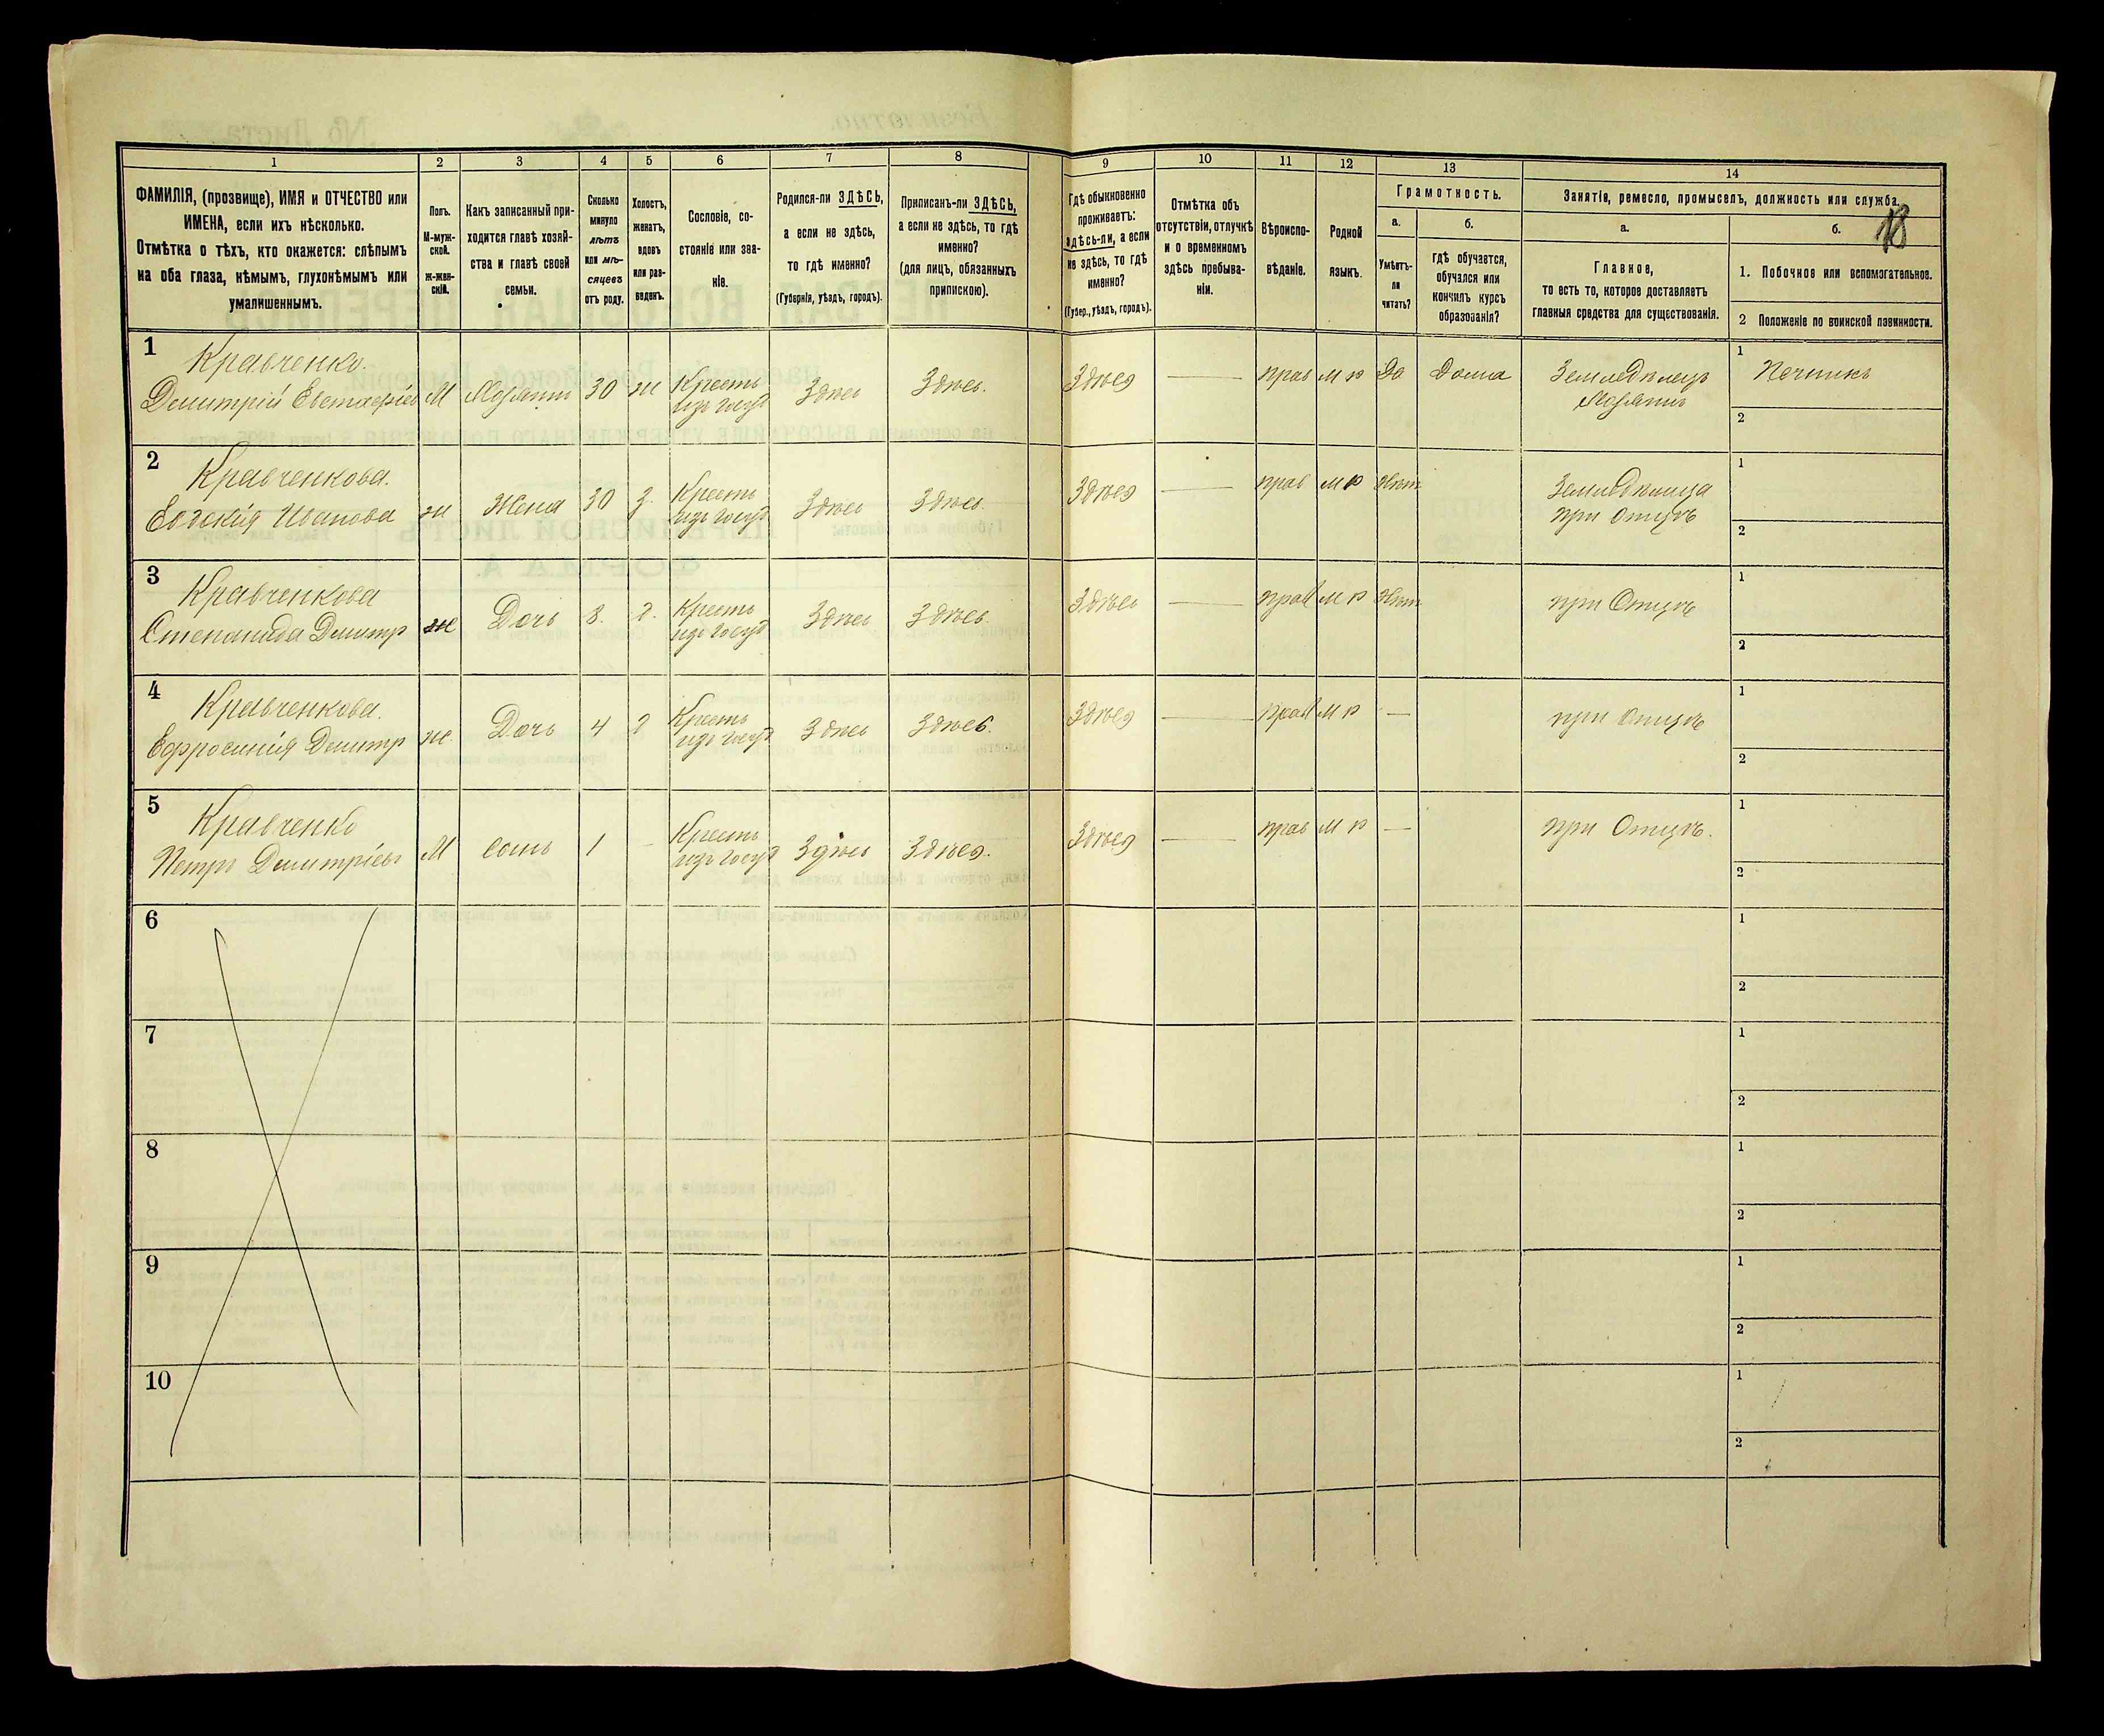 1 2 3 4 5 6 7 8 9 10 11 12 13 14
ФАМИЛІЯ, (прозвище), ИМЯ и ОТЧЕСТВО или
ИМЕНА, если ихъ нѣсколько.
Отмѣтка о тѣхъ, кто окажется: слѣпымъ
на оба глаза, нѣмымъ, глухонѣмымъ или
умалишеннымъ.
Полъ.
М-муж-
ской.
ж-жен-
скій.
Какъ записанный при-
ходится главѣ хозяй-
ства и главѣ своей
семьи.
Сколько
минуло
лѣтъ
или мѣ-
сяцевъ
отъ роду.
Холостъ,
женатъ,
вдовъ
или раз-
веденъ.
Сословіе, со-
стояніе или зва-
ніе.
Родился-ли ЗДѢСЬ,
а если не здѣсь,
то гдѣ именно?
(Губернія, уѣздъ, городъ).
Приписанъ-ли ЗДѢСЬ,
а если не здѣсь, то гдѣ
именно?
(для лицъ, обязанныхъ
припискою).
Гдѣ обыкновенно
проживаетъ:
здѣсь-ли, а если
не здѣсь, то гдѣ
именно?
(Губер., уѣздъ, городъ).
Отмѣтка объ
отсутствіи, отлучкѣ
и о временномъ
здѣсь пребыва-
ніи.
Вѣроиспо-
вѣданіе.
Родной
языкъ.
Грамотность.
а.
Умѣетъ-
ли
читать?
б.
гдѣ обучается,
обучался или
кончилъ курсъ
образованія?
Занятія, ремесло, промыселъ, должность или служба.
18
а.
Главное,
то есть то, которое доставляетъ
главныя средства для существованія.
б.
1. Побочное или вспомогательное.
2 Положеніе по воинской повинности.
1 Кравченко.
Дмитрій Евстафіевъ М Хозяинъ 30 ж Кресть изъ госуд Здѣсь Здѣсь. Здѣсь — прав м р Да Дома Земледѣлецъ Хозяинъ 1 Печникъ
2
2 Кравченкова.
Евдокія Иванова ж Жена 30 З. Кресть изъ госуд Здѣсь Здѣсь. Здѣсь — прав м р Нѣт Земледѣлица при Отцѣ 1
2
3 Кравченкова
Степанида Димитр ж Дочь 8. д. Кресть изъ госуд Здѣсь Здѣсь. Здѣсь — прав м р Нѣт при Отцѣ 1
2
4 Кравченкова.
Ефросинія Димитр ж. Дочь 4 д Кресть изъ госуд Здѣсь Здѣсь. Здѣсь — прав м р — при отцѣ 1
2
5 Кравченко
Петръ Димитріевъ М сынъ 1 - Кресть изъ госуд Здѣсь Здѣсь. Здѣсь — прав м р — при Отцѣ. 1
2
6 1
2
7 1
2
8 1
2
9 1
2
10 1
2